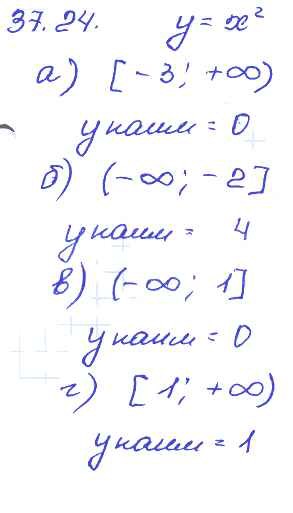 37.24. y = x²
а) [-3; +∞)
y наим = 0
б) (-∞; -2]
y наим = 4
в) (-∞; 1]
y наим = 0
г) [1; +∞)
y наим = 1